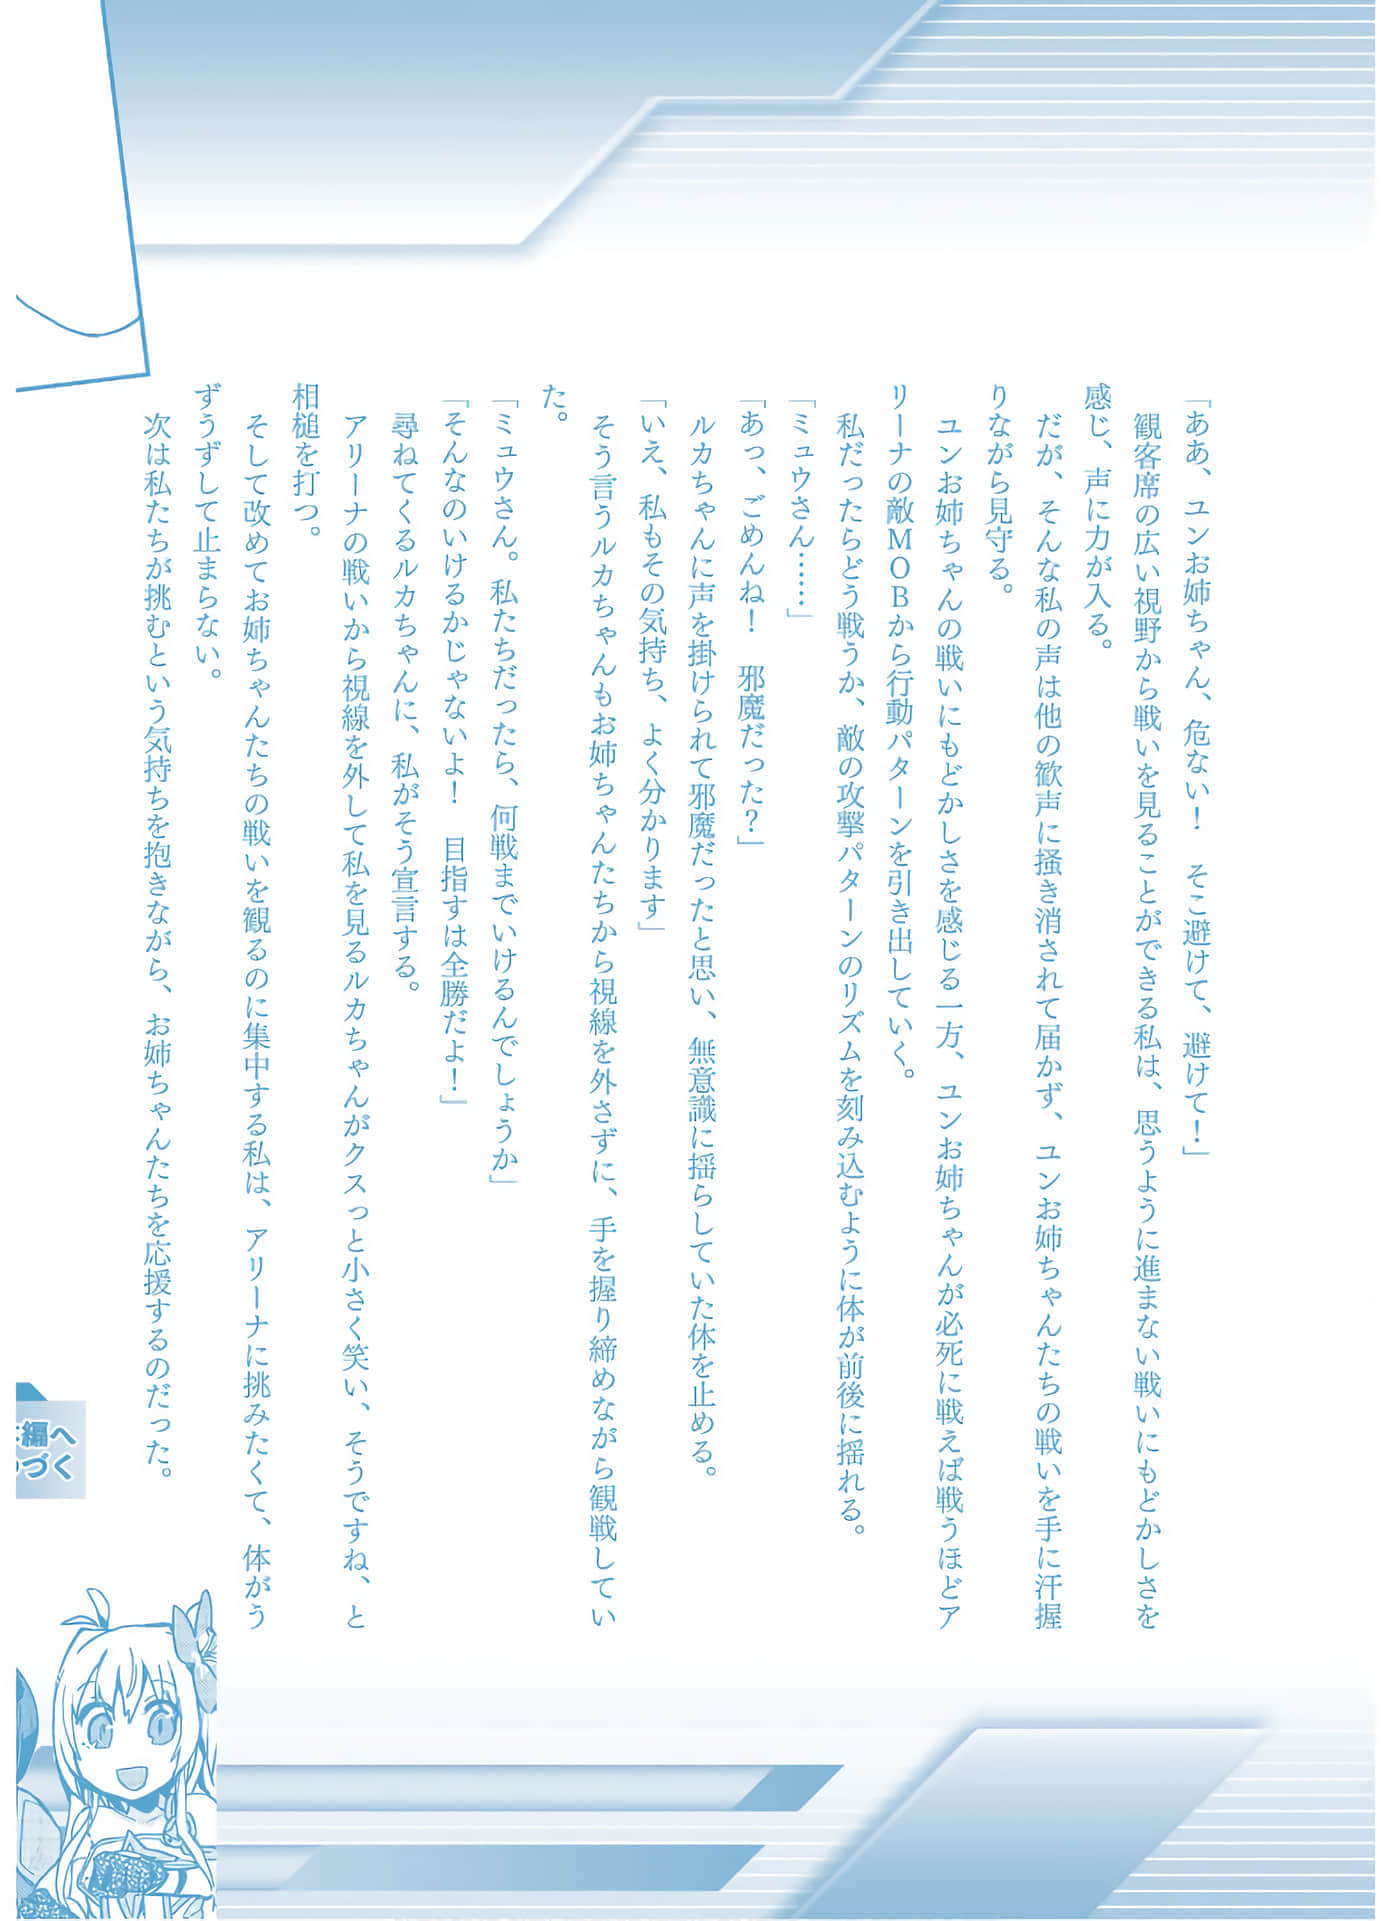 「ああ、ユンお姉ちゃん、危ない！　そこ避けて、避けて！」
　観客席の広い視野から戦いを見ることができる私は、思うように進まない戦いにもどかしさを
感じ、声に力が入る。
　だが、そんな私の声は他の歓声に掻き消されて届かず、ユンお姉ちゃんたちの戦いを手に汗握
りながら見守る。
　ユンお姉ちゃんの戦いにもどかしさを感じる一方、ユンお姉ちゃんが必死に戦えば戦うほどア
リーナの敵ＭＯＢから行動パターンを引き出していく。
　私だったらどう戦うか、敵の攻撃パターンのリズムを刻み込むように体が前後に揺れる。
「ミュウさん……」
「あっ、ごめんね！　邪魔だった？」
　ルカちゃんに声を掛けられて邪魔だったと思い、無意識に揺らしていた体を止める。
「いえ、私もその気持ち、よく分かります」
　そう言うルカちゃんもお姉ちゃんたちから視線を外さずに、手を握り締めながら観戦してい
た。
「ミュウさん。私たちだったら、何戦までいけるんでしょうか」
「そんなのいけるかじゃないよ！　目指すは全勝だよ！」
　尋ねてくるルカちゃんに、私がそう宣言する。
　アリーナの戦いから視線を外して私を見るルカちゃんがクスっと小さく笑い、そうですね、と
相槌を打つ。
　そして改めてお姉ちゃんたちの戦いを観るのに集中する私は、アリーナに挑みたくて、体がう
ずうずして止まらない。
　次は私たちが挑むという気持ちを抱きながら、お姉ちゃんたちを応援するのだった。
編へ
づく